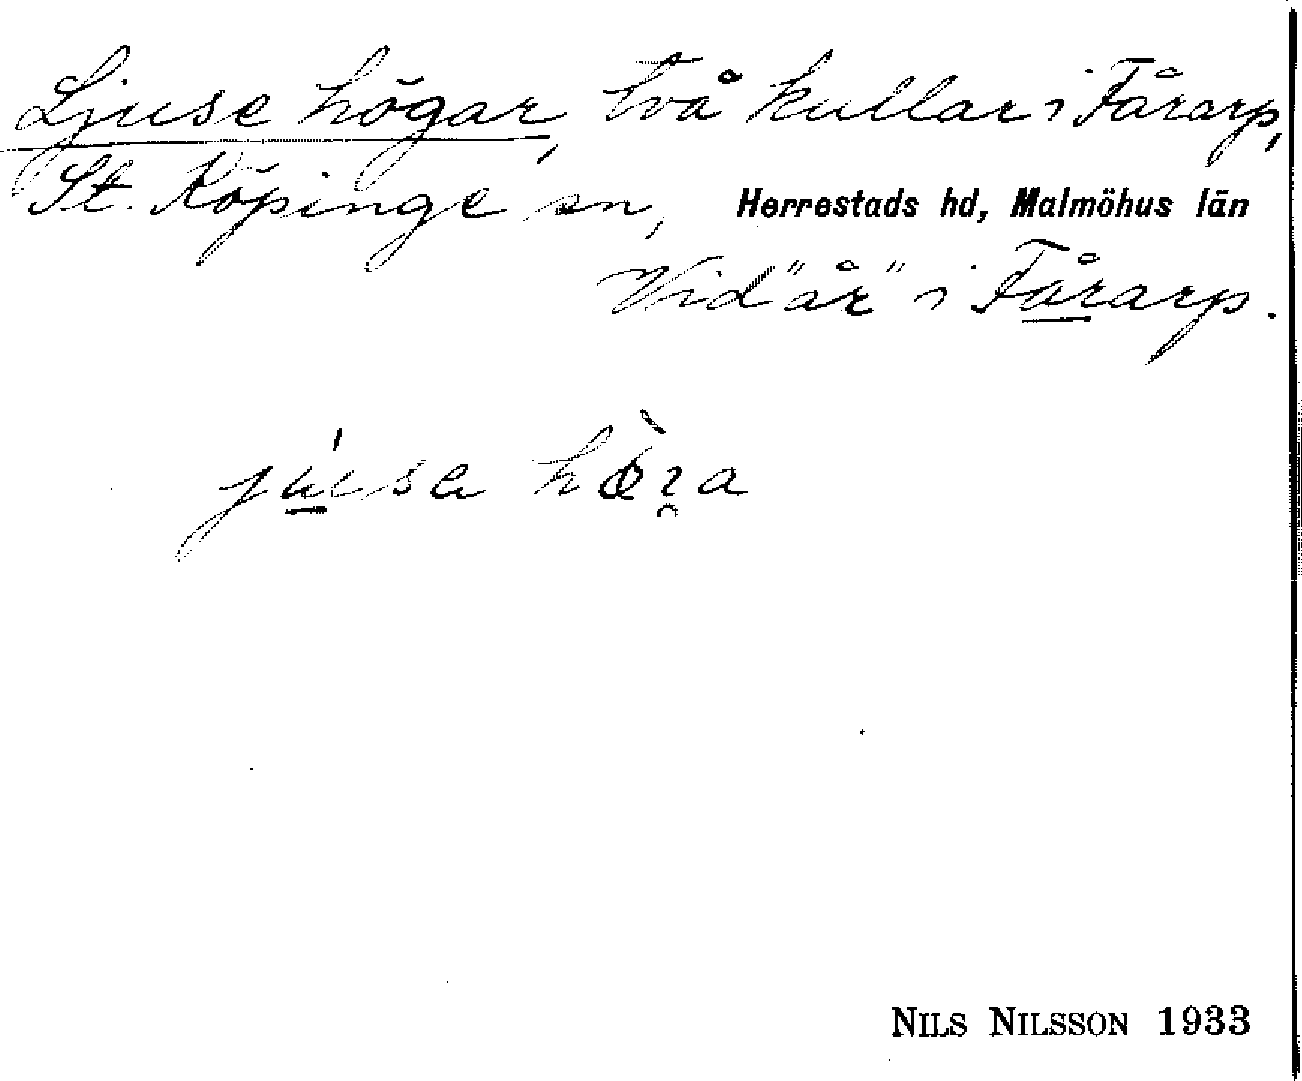 Ljuse högar, två kullar i Fårarp,
St. Köpinge sn, Herrestads hd, Malmöhus län
Vid "år" i Fårarp.
NILS NILSSON 1933